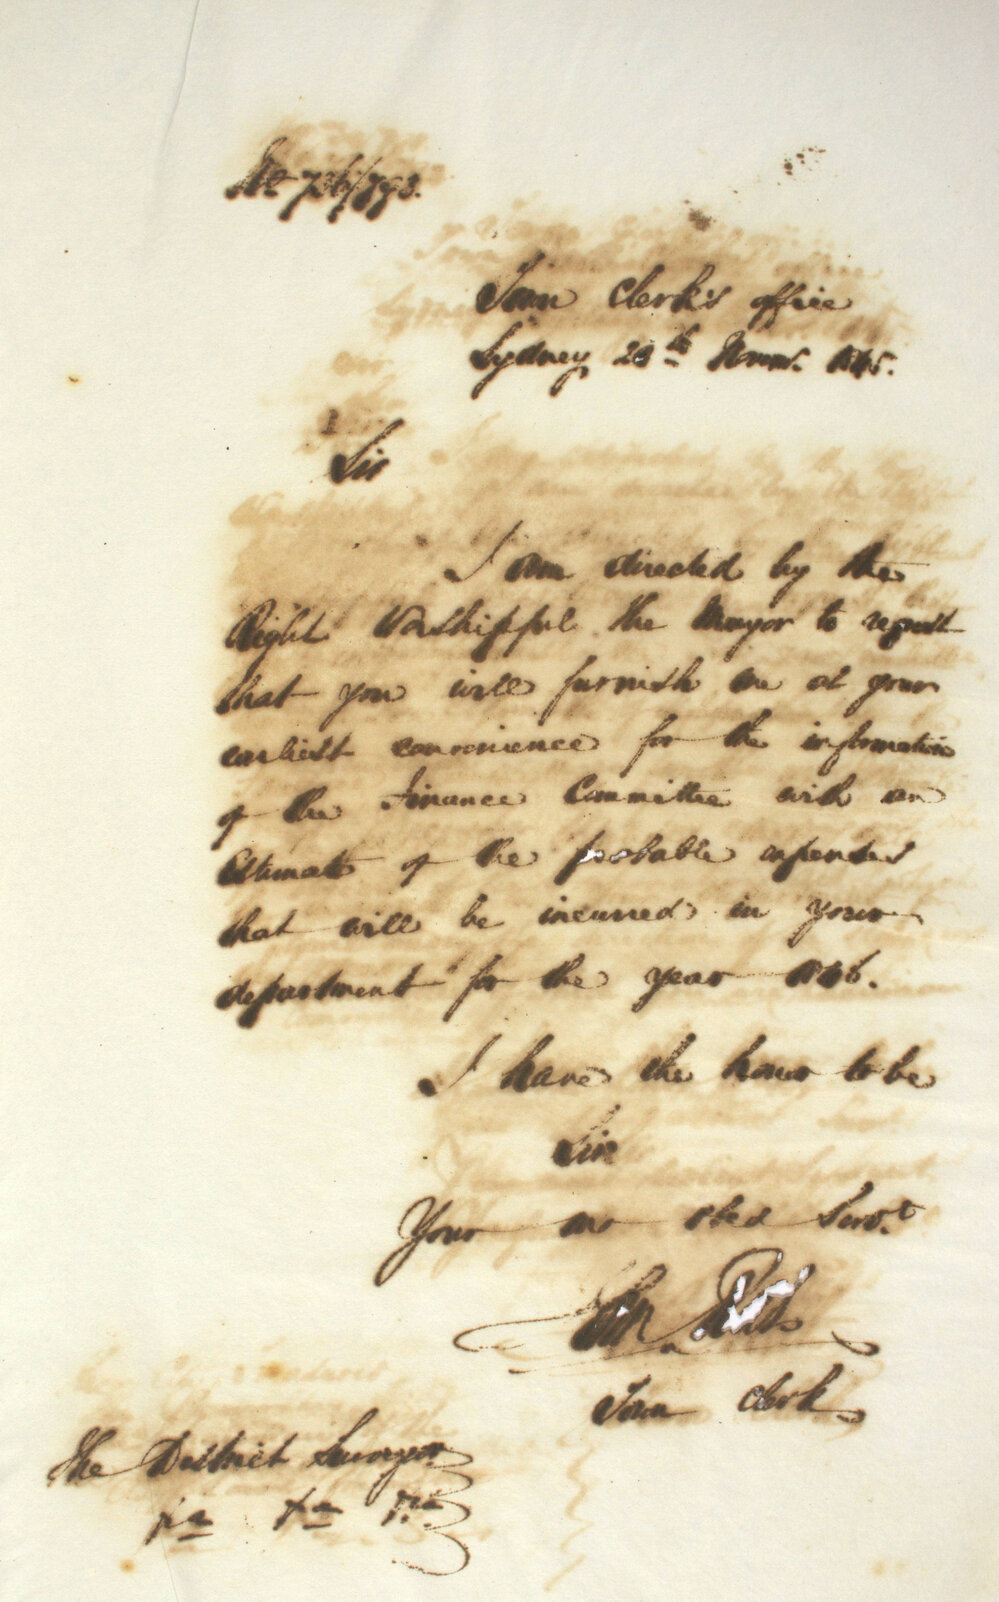 No 736/793.
Town Clerk's office
Sydney 28th Novr. 1845.
Sir
I am directed by the
Right Worshipful the Mayor to request
that you will furnish me at your
earliest convenience for the information
of the Finance Committee with an
Estimate of the probable expenses
that will be incurred in your
department for the year 1846.
I have the honor to be
Sir
Your mo obed Servt.
Town Clerk
The District Surveyor